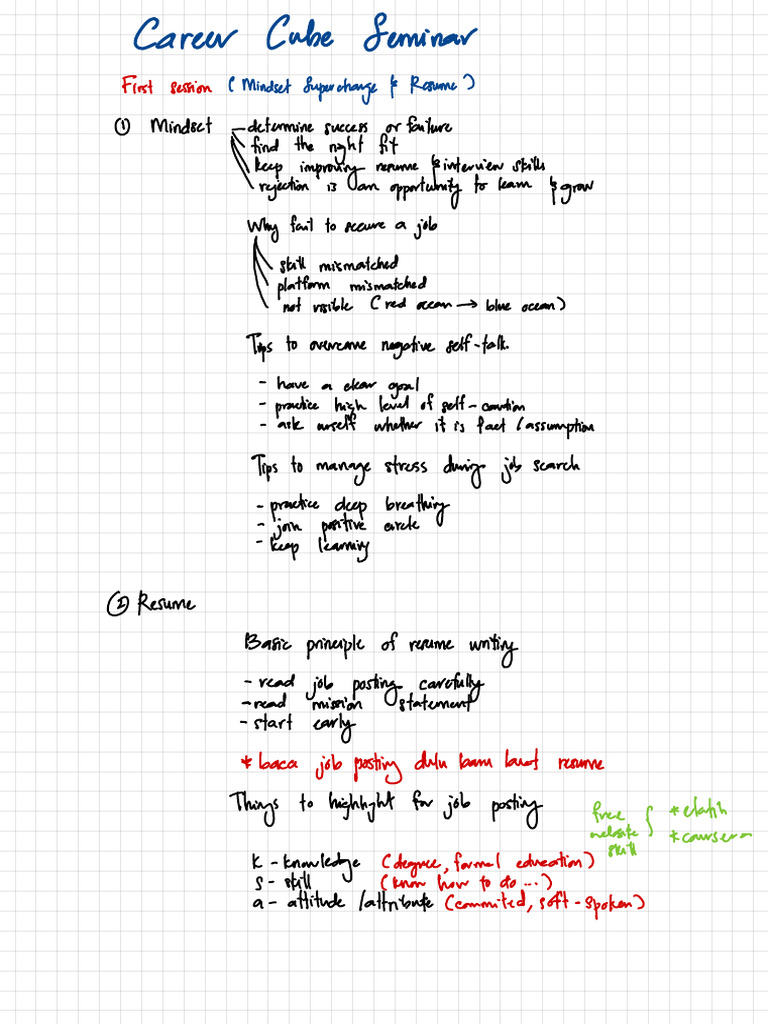 Career Cube Seminar
First session (Mindset Supercharge & Resume)
① Mindset – determine success or failure
find the right fit
keep improving resume & interview skills
rejection is an opportunity to learn & grow
Why fail to secure a job
skill mismatched
platform mismatched
not visible (red ocean → blue ocean)
Tips to overcome negative self-talk.
- have a clear goal
- practice high level of self-caution
- ask urself whether it is fact / assumption
Tips to manage stress during job search
- practice deep breathing
- join positive circle
- keep learning
② Resume
Basic principle of resume writing
- read job posting carefully
- read mission statement
- start early
* baca job posting dulu baru buat resume
Things to highlight for job posting
free website skill } * elatih
* coursera
k - knowledge (degree, formal education)
s - skill (know how to do ...)
a - attitude / attribute (commited, soft-spoken)